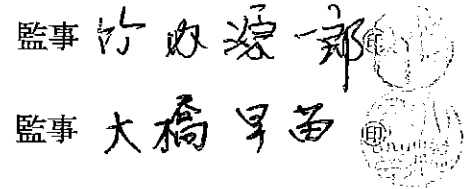 監事 竹内源一郎 ㊞
監事 大橋早苗 ㊞